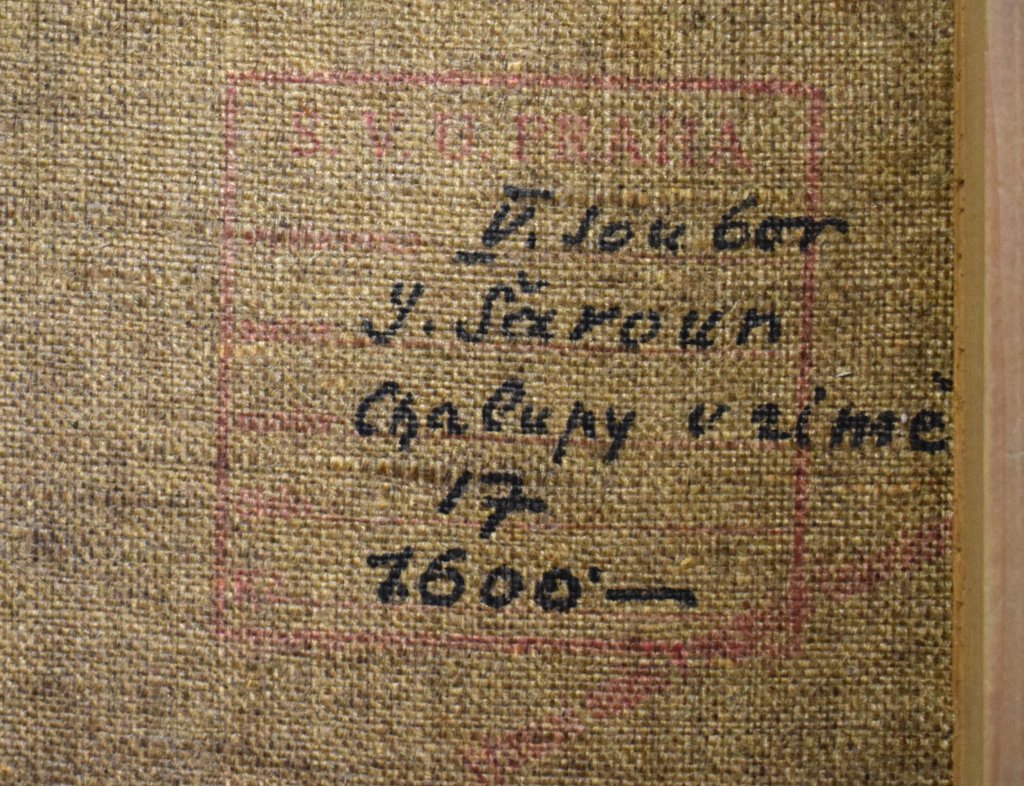 S. V. U. PRAHA
V. soubor
J. Šároun
Chalupy v zimě
17
1600·—